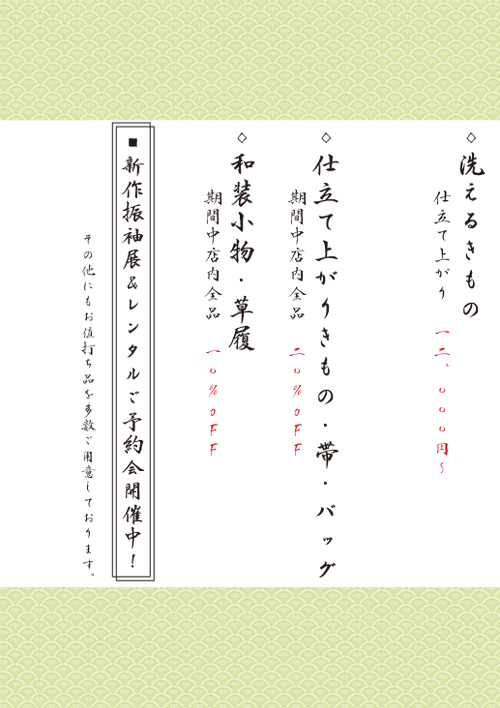 ◇洗えるきもの
仕立て上がり 一二、〇〇〇円～
◇仕立て上がりきもの・帯・バッグ
期間中店内全品 二〇％ＯＦＦ
◇和装小物・草履
期間中店内全品 一〇％ＯＦＦ
■新作振袖展＆レンタルご予約会開催中！
その他にもお値打ち品を多数ご用意しております。